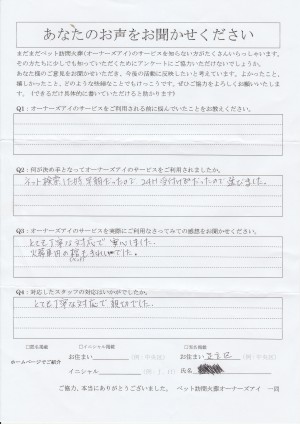 あなたのお声をお聞かせください
まだまだペット訪問火葬(オーナーズアイ)のサービスを知らない方がたくさんいらっしゃいます。
その方たちに少しでも知っていただくためにアンケートにご協力いただけないでしょうか。
あなた様のご意見をお聞かせいただき、今後の活動に反映したいと考えています。よかったこと、
嬉しかったこと、どのような些細なことでもけっこうです。ぜひご協力をよろしくお願いいたしま
す。(できるだけ具体的に書いていただけると助かります)
Q1:オーナーズアイのサービスをご利用される前に悩んでいたことをお教えください。
Q2:何が決め手となってオーナーズアイのサービスをご利用されましたか。
ネット検索した時
24H受付けだったので選びました。
Q3:オーナーズアイのサービスを実際にご利用なさってみての感想をお聞かせください。
とても丁寧な対応で安心しました。
火葬専用の
Q4:対応したスタッフの対応はいかがでしたか。
とても丁寧な対応で親切でした。
□匿名掲載 □イニシャル掲載 □実名掲載
お住まい (例:中央区) お住まい (例:中央区)
ホームページでご紹介
イニシャル (例:T、H) 氏名
ご協力、本当にありがとうございました。 ペット訪問火葬オーナーズアイ 一同